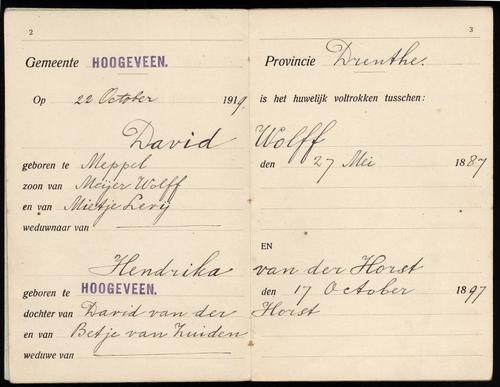 2
Gemeente HOOGEVEEN.
Op 22 October 1919.
David
geboren te Meppel
zoon van Meijer Wolff
en van Mietje Levij
weduwnaar van
Hendrika
geboren te HOOGEVEEN.
dochter van David van der
en van Betje van Zuiden
weduwe van
3
Provincie Drenthe.
is het huwelijk voltrokken tusschen:
Wolff
den 27 Mei 1887
EN
van der Horst
den 17 October 1897
Horst